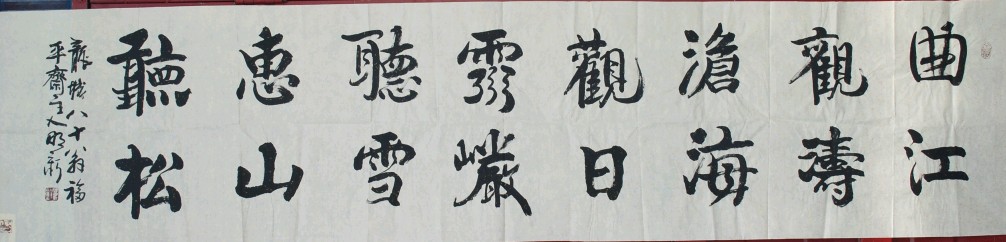 曲江
觀濤
滄海
觀日
靈巖
聽雪
惠山
聽松
八十翁福
平齋主人